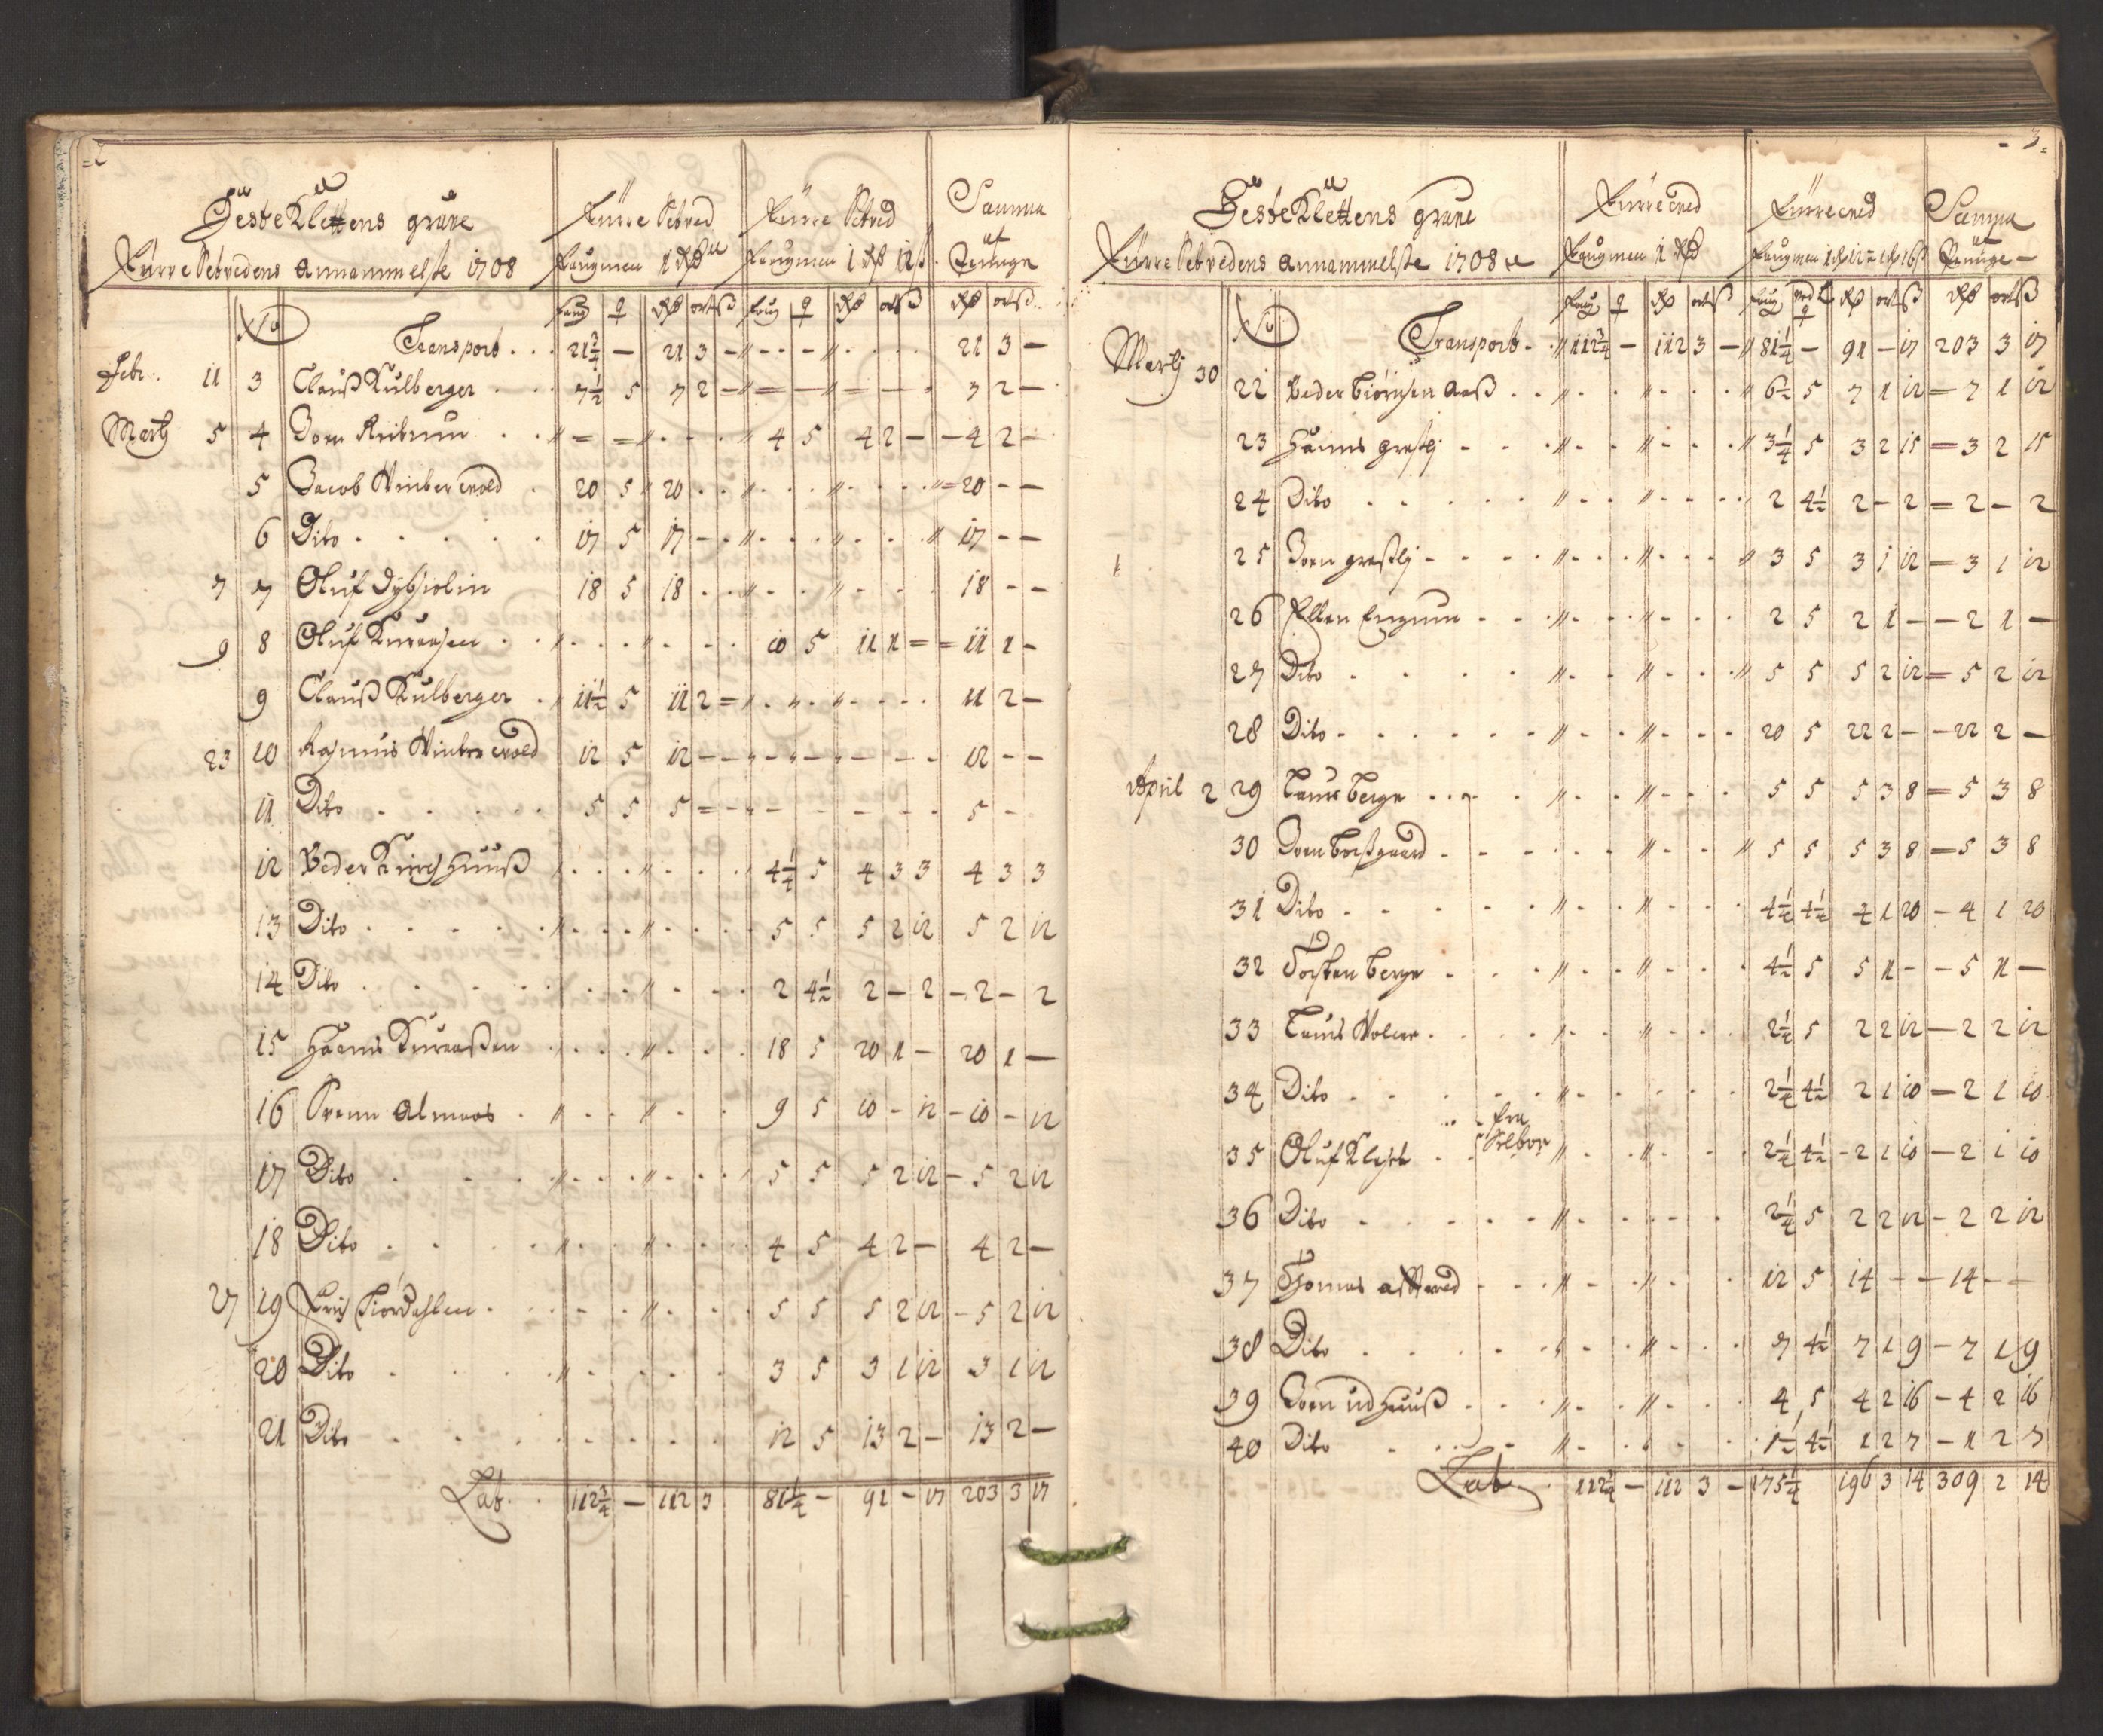 =2
Gæste Klettens grue
Fürre Setvedens annammelse 1708
Fürre Setved
Faugnen 1 Rdr
Fürre Setved
Faugnen 1 Rd 12 s
Summa
af
Penge
No
faug q Rd ort s faug q Rd ort s Rd ort s
Transport . . 21 3/4 - 21 3 - 21 3 -
Febr. 11 3 Clauß Kulberger . 7 1/2 5 7 2 - 7 2 -
Marty 5 4 Joen . . 4 5 4 2 - 4 2 -
5 Jacob Winter wold . 20 5 20 . . 20 - -
6 Dito . . . . . 17 5 17 - . 17 - -
7 7 Oluf Dybsiolin 18 5 18 . . 18 - -
9 8 Oluf . . 10 5 11 1 = 11 1 -
9 Clauß Kulberger . 11 1/2 5 11 2 = 11 2 -
23 10 Rasmus Winter wold 12 5 12 - - 12 - -
11 Dito . . . . . 5 5 5 = - 5 -
12 Peder Kirchhuuß 4 1/4 5 4 3 3 4 3 3
13 Dito . . . . . 5 5 5 2 12 5 2 12
14 Dito . . . . 2 4 1/2 2 - 2 - 2 - 2
15 Hanns . 18 5 20 1 - 20 1 -
16 Svenn Almaas . 9 5 10 - 12 - 10 - 12
17 Dito . . . 5 5 5 2 12 - 5 2 12
18 Dito . . . . 4 5 4 2 - 4 2 -
27 19 Erich Fiördahlen . 5 5 5 2 12 - 5 2 12
20 Dito . . . 3 5 3 1 12 3 1 12
21 Dito . . . 12 5 13 2 - 13 2 -
Lat. . 112 3/4 - 112 3 81 1/4 - 91 - 17 203 3 17
- 3 =
Gæste Klettens grue
Fürre Setvedens annammelse 1708
Fürreved
Faugnen 1 Rd
Fürreved
Faugnen 1 Rd 12 s 1 Rd 16 s
Summa
af
Penge -
No
faug q Rd ort s faug ved q Rd ort s Rd ort s
Transport . 112 3/4 - 112 3 - 81 1/4 - 91 - 17 203 3 17
Marty 30 22 Peder Biörnsen Aaß . . 6 1/2 5 7 1 12 = 7 1 12
23 Hanns Græslj - - 3 1/4 5 3 2 15 = 3 2 15
24 Dito . . . . 2 4 1/2 2 - 2 = 2 - 2
25 Joen Græslj - - - 3 5 3 1 12 - 3 1 12
26 Ellen - - 2 5 2 1 - - 2 1 -
27 Dito . . . . 5 5 5 2 12 = 5 2 12
28 Dito . . . . . 20 5 22 2 - - 22 2 -
April 2 29 Lars Berge . . . 5 5 5 3 8 = 5 3 8
30 Joen - - - 5 5 5 3 8 = 5 3 8
31 Dito . - - - 4 1/4 4 1/2 4 1 20 - 4 1 20
32 Torsten Berge . . . 4 1/2 5 5 1 - - 5 1 -
33 Lars . . . 2 1/4 5 2 2 12 - 2 2 12
34 Dito . . . . 2 1/4 4 1/2 2 1 10 - 2 1 10
35 Oluf Klest . . fra
Selboe 2 1/4 4 1/2 - 2 1 10 - 2 1 10
36 Dito . . . . 2 1/4 5 2 2 12 - 2 2 12
37 Thomas - - 12 5 14 - - - 14 - -
38 Dito . . . . 7 4 1/2 7 1 9 - 7 1 9
39 Joen Udhuuß . . . 4 5 4 2 16 - 4 2 16
40 Dito . . . 1 1/2 4 1/2 1 2 7 - 1 2 7
Lat . 112 3/4 - 112 3 - 175 1/4 196 3 14 309 2 14